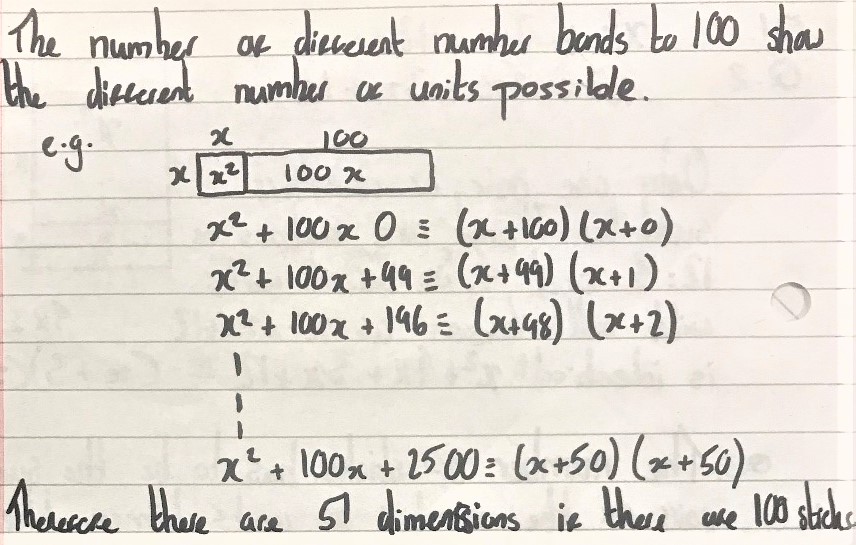 The number of different number bonds to 100 show
the different number of units possible.
e.g.
x 100
x x² 100x
x² + 100x 0 ≡ (x+100)(x+0)
x² + 100x + 99 ≡ (x+99) (x+1)
x² + 100x + 196 ≡ (x+98) (x+2)
x² + 100x + 2500 ≡ (x+50) (x+50)
Therefore there are 51 dimensions if there are 100 sticks